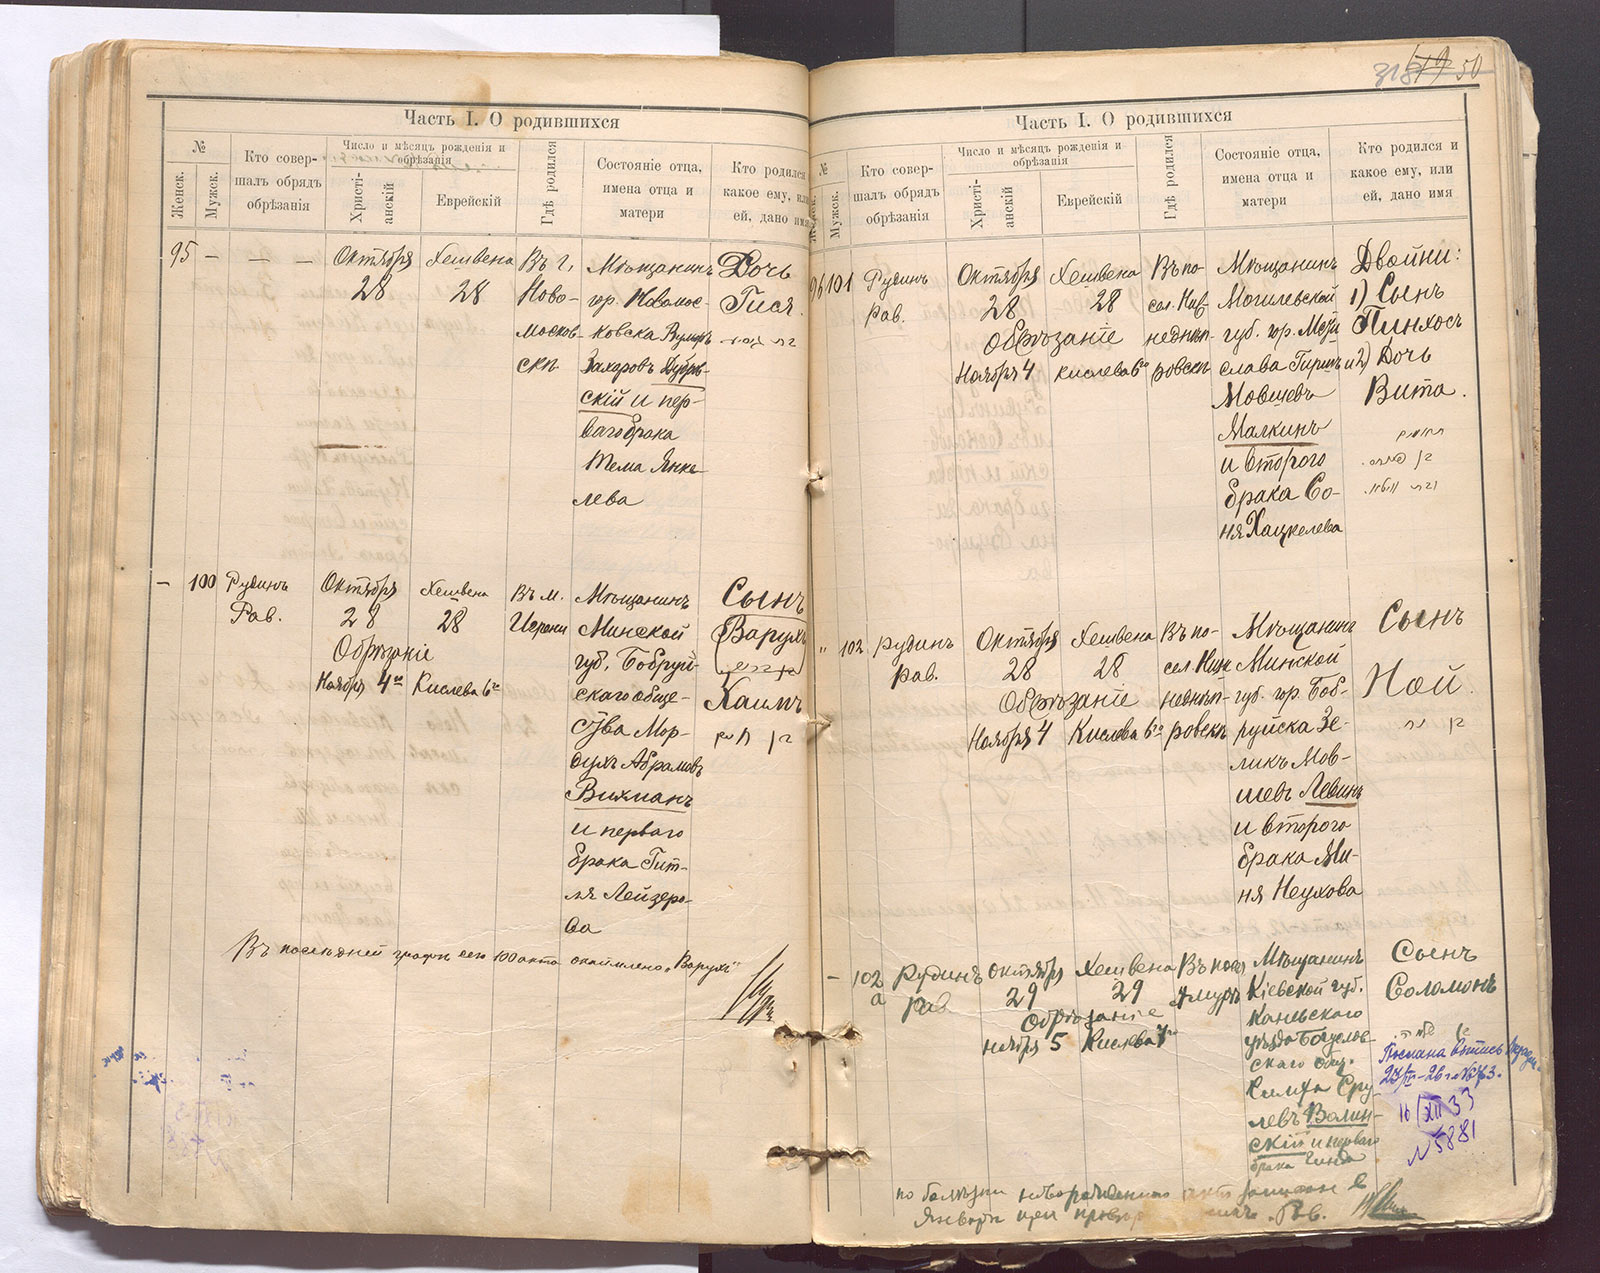 Часть I. О родившихся
№
Женск.
Мужск.
Кто совер-
шалъ обрядъ
обрѣзанія
Число и мѣсяцъ рожденія и
обрѣзанія
Христі-
анскій
Еврейскій
Гдѣ родился
Состояніе отца,
имена отца и
матери
Кто родился
какое ему, или
ей, дано имя
95 — — —
Октября
28
Хешвена
28
Въ г.
Ново-
москов-
скѣ
Мѣщанинъ
гор. Новомос-
ковска
Захаровъ
скій и пер-
ваго брака
Тема Янке-
лева
Дочь
Гися.
— 100
Рудинъ
Рав.
Октября
28
Обрѣзаніе
Ноября 4го
Хешвена
28
Кислева 6го
Въ м.
Мѣщанинъ
Минской
губ. Бобруй-
скаго обще-
ства Мор-
духъ Абрамовъ
Вихманъ
и перваго
брака Гит-
ля Лейзеро-
ва
Сынъ
(Барухъ)
Хаимъ
בן חיים
Въ последней графѣ сего 100 акта „Барухъ“
50
Часть I. О родившихся
№
Мужск.
Кто совер-
шалъ обрядъ
обрѣзанія
Число и мѣсяцъ рожденія и
обрѣзанія
Христі-
анскій
Еврейскій
Гдѣ родился
Состояніе отца,
имена отца и
матери
Кто родился и
какое ему, или
ей, дано имя
96 101
Рудинъ
Рав.
Октября
28
Обрѣзаніе
Ноября 4
Хешвена
28
Кислева 6го
Въ по-
сел. Ниж-
неднѣп-
ровскѣ
Мѣщанинъ
Могилевской
губ. гор. Мсти-
слава Гиршъ
Мовшевъ
Малкинъ
и второго
брака Со-
ня Хацкелева
Двойни:
1) Сынъ
Пинхосъ
и 2) Дочь
Вита.
" 102
Рудинъ
Рав.
Октября
28
Обрѣзаніе
Ноября 4
Хешвена
28
Кислева 6го
Въ по-
сел. Ниж-
неднѣп-
ровскѣ
Мѣщанинъ
Минской
губ. гор. Боб-
руйска Зе-
ликъ Мов-
шевъ Левинъ
и второго
брака Ми-
ня Неухова
Сынъ
Ной.
בן נח
— 102
а
Рудинъ
Рав.
Октября
29
Обрѣзаніе
Ноября 5
Хешвена
29
Кислева 7го
Въ пос.
Амуръ
Мѣщанинъ
Кіевской губ.
Каневского
уѣзда Богуслав-
скаго общ.
Сру-
левъ Волин-
скій и перваго
брака
Сынъ
Соломонъ
Послана выпись
16/XII 33
№ 5881
по болѣзни
Рав.